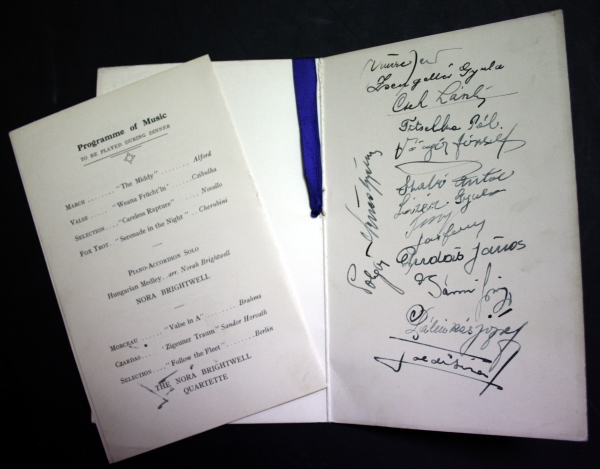 Programme of Music
TO BE PLAYED DURING DINNER
MARCH ........ "The Middy" ........ Alford
VALSE ........ "Weana Frücht'ln" ........ Czibulka
SELECTION ...... "Careless Rapture" ...... Novello
FOX TROT .. "Serenade in the Night" .. Cherubini
PIANO-ACCORDION SOLO
Hungarian Medley .. arr. Norah Brightwell
NORA BRIGHTWELL
MORCEAU ........ "Valse in A" ........ Brahms
CZARDAS .. "Zigeuner Traum" Sandor Horvath
SELECTION .. "Follow the Fleet" .. Berlin
THE NORA BRIGHTWELL
QUARTETTE
Vincze Jenő
Zsengellér Gyula
Cseh László
Titschka Pál.
Vágó József
Szabó Antal
Lázár Gyula
Dudás János
Sárosi György
Pálinkás József
Toldi Géza
Polgár